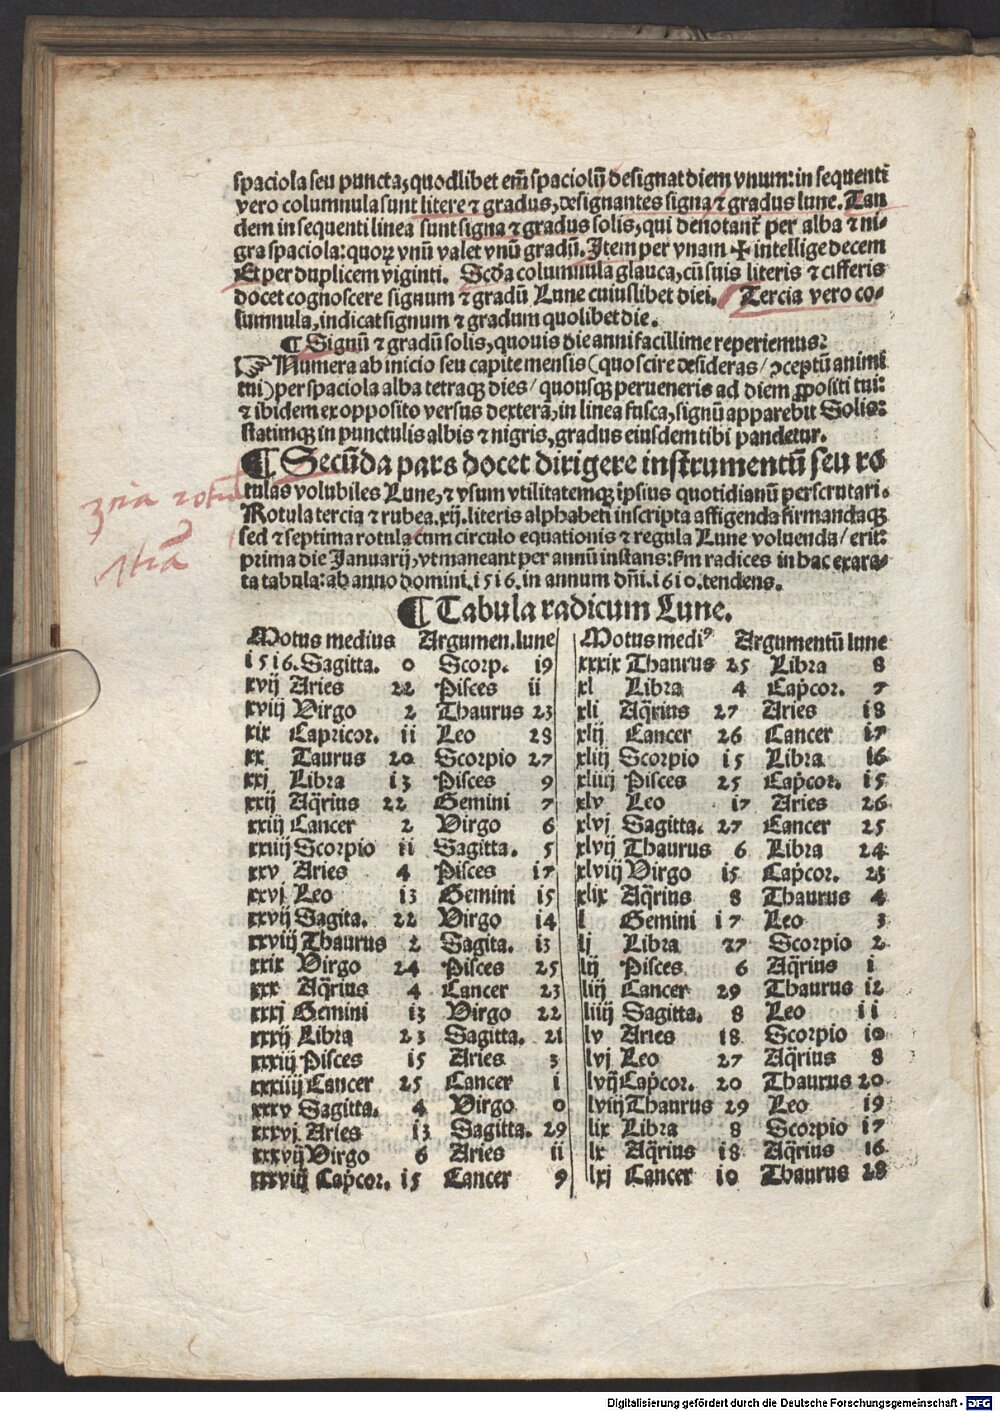 spaciola seu puncta, quodlibet em̄ spaciolū designat diem vnum: in sequenti
vero columnula sunt litere ⁊ gradus, designantes signa ⁊ gradus lune. Tan
dem in sequenti linea sunt signa ⁊ gradus solis, qui denotant᷑ per alba ⁊ ni-
gra spaciola: quoꝝ vnū valet vnū gradū. Item per vnam ✠ intellige decem
Et per duplicem viginti. Scd̄a columnula glauca, cū suis literis ⁊ cifferis
docet cognoscere signum ⁊ gradū Lune cuiuslibet diei. Tercia vero co-
lumnula, indicat signum ⁊ gradum quolibet die.
¶ Signū ⁊ gradū solis, quouis die anni facillime reperiemus?
☞ Numera ab inicio seu capite mensis (quo scire desideras / ↄceptū animi
tui) per spaciola alba tetraqꝫ dies / quousqꝫ perueneris ad diem ꝓpositi tui:
⁊ ibidem ex opposito versus dexterā, in linea fusca, signū apparebit Solis:
statimqꝫ in punctulis albis ⁊ nigris, gradus eiusdem tibi pandetur.
¶ Secūda pars docet dirigere instrumentū seu ro
tulas volubiles Lune, ⁊ vsum vtilitatemqꝫ ipsius quotidianū perscrutari.
Rotula tercia ⁊ rubea .xij. literis alphabeti inscripta affigenda firmandaqꝫ
sed ⁊ septima rotula cum circulo equationis ⁊ regula Lune voluenda / erit:
prima die Januarij, vt maneant per annū instans: s̄m radices in hac exara-
ta tabula: ab anno domini .1516. in annum dn̄i .1610. tendens.
¶ Tabula radicum Lune.
Motus medius Argumen. lune Motus mediꝰ Argumentū lune
1516. Sagitta. 0 Scorp. 19 xxxix Thaurus 25 Libra 8
xvij Aries 22 Pisces ii xl Libra 4 Cap̄cor. 7
xviij Virgo 2 Thaurus 23 xli Aq̄rius 27 Aries 18
xix Capricor. ii Leo 28 xlij Cancer 26 Cancer 17
xx Taurus 20 Scorpio 27 xliij Scorpio 15 Libra 16
xxj Libra 13 Pisces 9 xliiij Pisces 25 Cap̄cor. 15
xxij Aq̄rius 22 Gemini 7 xlv Leo 17 Aries 26
xxiij Cancer 2 Virgo 6 xlvj Sagitta. 27 Cancer 25
xxiiij Scorpio ii Sagitta. 5 xlvij Thaurus 6 Libra 24
xxv Aries 4 Pisces 17 xlviij Virgo 15 Cap̄cor. 23
xxvj Leo 13 Gemini 15 xlix Aq̄rius 8 Thaurus 4
xxvij Sagita. 22 Virgo 14 l Gemini 17 Leo 3
xxviij Thaurus 2 Sagita. 13 lj Libra 27 Scorpio 2
xxix Virgo 24 Pisces 25 lij Pisces 6 Aq̄rius 1
xxx Aq̄rius 4 Cancer 23 liij Cancer 29 Thaurus 12
xxxj Gemini 13 Virgo 22 liiij Sagitta. 8 Leo 11
xxxij Libra 23 Sagitta. 21 lv Aries 18 Scorpio 10
xxxiij Pisces 15 Aries 3 lvj Leo 27 Aq̄rius 8
xxxiiij Cancer 25 Cancer 1 lvij Cap̄cor. 20 Thaurus 20
xxxv Sagitta. 4 Virgo 0 lviij Thaurus 29 Leo 19
xxxvj Aries 13 Sagitta. 29 lix Libra 8 Scorpio 17
xxxvij Virgo 6 Aries ii lx Aq̄rius 18 Aq̄rius 16
xxxviij Cap̄cor. 15 Cancer 9 lxj Cancer 10 Thaurus 28
Digitalisierung gefördert durch die Deutsche Forschungsgemeinschaft - DFG